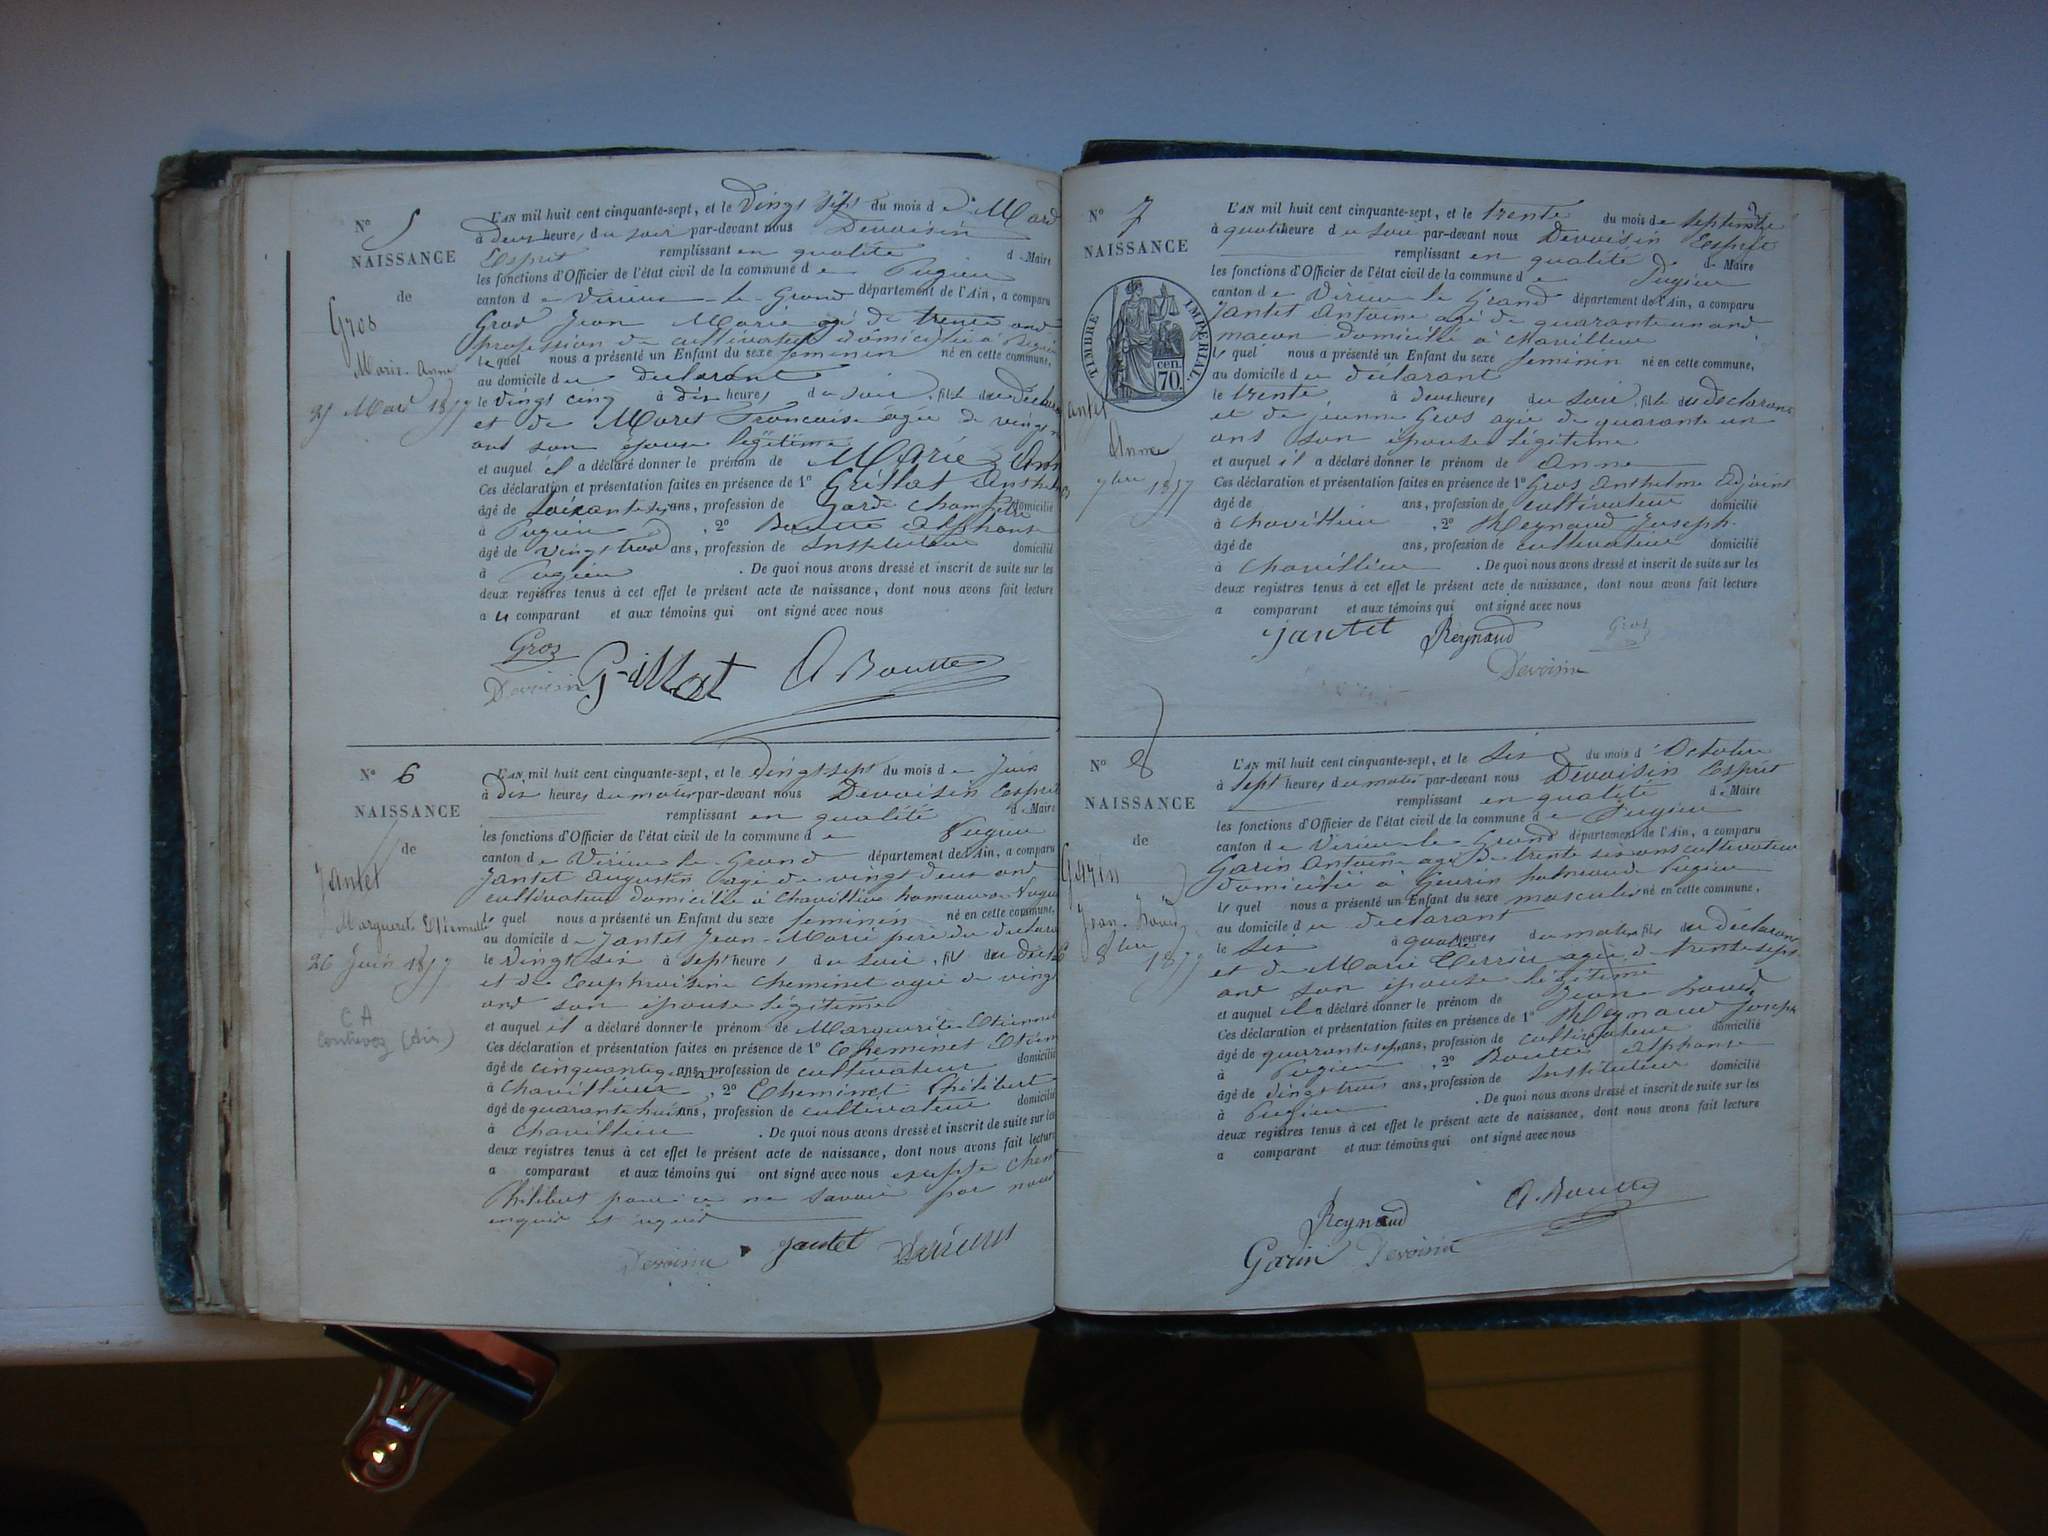 N° 5
NAISSANCE
de
Gros
Marie-Anne
25 Mars 1857
L'AN mil huit cent cinquante-sept, et le Vingt sept du mois de Mars
à deux heures du soir par-devant nous Devoisin
Esprit remplissant en qualité de Maire
les fonctions d'Officier de l'état civil de la commune de Pugieu
canton de Virieu-le-Grand département de l'Ain, a comparu
Gros Jean Marie agé de trente ans
profession de cultivateur domicilié à Pugieu
lequel nous a présenté un Enfant du sexe feminin né en cette commune,
au domicile du declarant
le vingt cinq à dix heures du soir, fils du Déclarant
et de Moret Francoise agée de vingt
ans son épouse légitime
et auquel il a déclaré donner le prénom de Marie Ann
Ces déclaration et présentation faites en présence de 1° Grillot Anthelme
âgé de soixante ans, profession de Garde champêtre domicilié
à Pugieu, 2° Boutte Alphonse
âgé de vingt trois ans, profession de Instituteur domicilié
à Pugieu. De quoi nous avons dressé et inscrit de suite sur les
deux registres tenus à cet effet le présent acte de naissance, dont nous avons fait lecture
au comparant et aux témoins qui ont signé avec nous
Gros
Devoisin Grillot A Boutte
N° 6
NAISSANCE
de
Jantet
Marguerite Etiennette
26 Juin 1857
C A
Contrevoz (Ain)
L'AN mil huit cent cinquante-sept, et le Vingt sept du mois de Juin
à dix heures du matin par-devant nous Devoisin Esprit
remplissant en qualité de Maire
les fonctions d'Officier de l'état civil de la commune de Pugieu
canton de Virieu-le-Grand département de l'Ain, a comparu
Jantet Augustin agé de vingt deux ans
cultivateur domicilié à Chavillieu hameau de Pugieu
lequel nous a présenté un Enfant du sexe feminin né en cette commune,
au domicile de Jantet Jean-Marie père du declarant
le vingt six à sept heures du soir, fils du Déclarant
et de Euphroisine Cheminet agée de vingt
ans son épouse légitime
et auquel il a déclaré donner le prénom de Marguerite-Etiennet
Ces déclaration et présentation faites en présence de 1° Cheminet Etienne
âgé de cinquante ans, profession de cultivateur domicilié
à Chavillieu, 2° Cheminet Philibert
âgé de quarante huit ans, profession de cultivateur domicilié
à Chavillieu. De quoi nous avons dressé et inscrit de suite sur les
deux registres tenus à cet effet le présent acte de naissance, dont nous avons fait lecture
a comparant et aux témoins qui ont signé avec nous excepté Chem
Philibert pour ce ne savoir par nous
enquis et requis
Devoisin Jantet
N° 7
NAISSANCE
TIMBRE IMPÉRIAL
cen. 70.
Jantet
Anne
7bre 1857
L'AN mil huit cent cinquante-sept, et le trente du mois de septembre
à quatre heure du soir par-devant nous Devoisin Esprit
remplissant en qualité de Maire
les fonctions d'Officier de l'état civil de la commune de Pugieu
canton de Virieu le Grand département de l'Ain, a comparu
Jantet Antoine agé de quarante un ans
maçon domicilié à Chavillieu
lequel nous a présenté un Enfant du sexe feminin né en cette commune,
au domicile du déclarant
le trente à deux heures du soir, fils du declarant
et de Jeanne Gros agée de quarante un
ans son épouse légitime
et auquel il a déclaré donner le prénom de Anne
Ces déclaration et présentation faites en présence de 1° Gros Anthelme Adjoint
âgé de ans, profession de cultivateur domicilié
à Chavillieu, 2° Reynaud Joseph
âgé de ans, profession de cultivateur domicilié
à Chavillieu. De quoi nous avons dressé et inscrit de suite sur les
deux registres tenus à cet effet le présent acte de naissance, dont nous avons fait lecture
a comparant et aux témoins qui ont signé avec nous
Jantet Reynaud Gros
Devoisin
N° 8
NAISSANCE
de
Garin
Jean-Louis
8bre 1857
L'AN mil huit cent cinquante-sept, et le Six du mois d'Octobre
à sept heures du matin par-devant nous Devoisin Esprit
remplissant en qualité de Maire
les fonctions d'Officier de l'état civil de la commune de Pugieu
canton de Virieu-le-Grand département de l'Ain, a comparu
Garin Antoine agé de trente six ans cultivateur
domicilié à hameau de Pugieu
lequel nous a présenté un Enfant du sexe masculin né en cette commune,
au domicile du declarant
le Six à quatre heures du matin, fils du déclarant
et de Marie agée de trente sept
ans son épouse légitime
et auquel il a déclaré donner le prénom de Jean-Louis
Ces déclaration et présentation faites en présence de 1° Reynaud Joseph
âgé de quarante sept ans, profession de cultivateur domicilié
à Pugieu, 2° Boutte Alphonse
âgé de vingt trois ans, profession de Instituteur domicilié
à Pugieu. De quoi nous avons dressé et inscrit de suite sur les
deux registres tenus à cet effet le présent acte de naissance, dont nous avons fait lecture
a comparant et aux témoins qui ont signé avec nous
Reynaud A. Boutte
Garin Devoisin